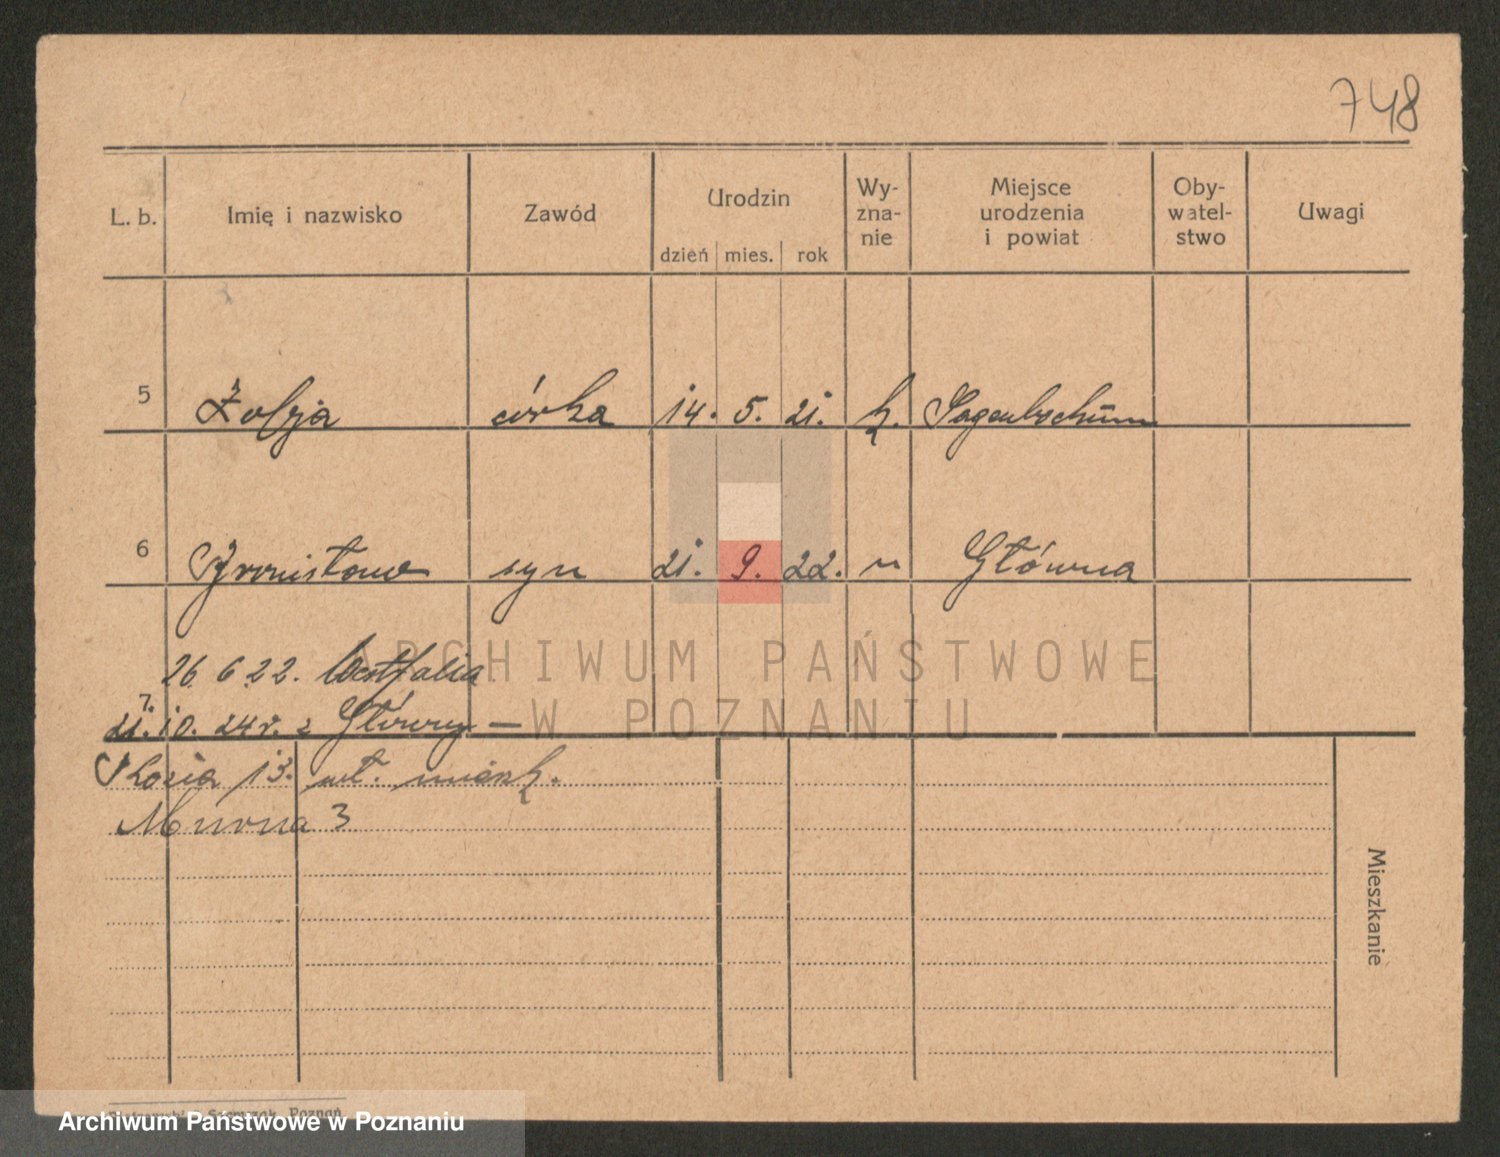 748
L. b. Imię i nazwisko Zawód Urodzin dzień mies. rok Wy-zna-nie Miejsce urodzenia i powiat Oby-watel-stwo Uwagi
5 Zofja córka 14. 5. 21. k.
6 Bronisław syn 21. 9. 22. " Główna
26 6 22. Westfalia
7.
21. 10. 24 r. z Główny —
13. wł. mieszk.
Murna 3
Mieszkanie
ARCHIWUM PAŃSTWOWE
W POZNANIU
Poznań
Archiwum Państwowe w Poznaniu